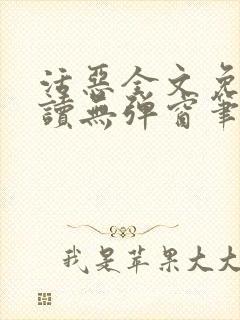 活惡全文免
讀無彈窗筆
我是苹果大大